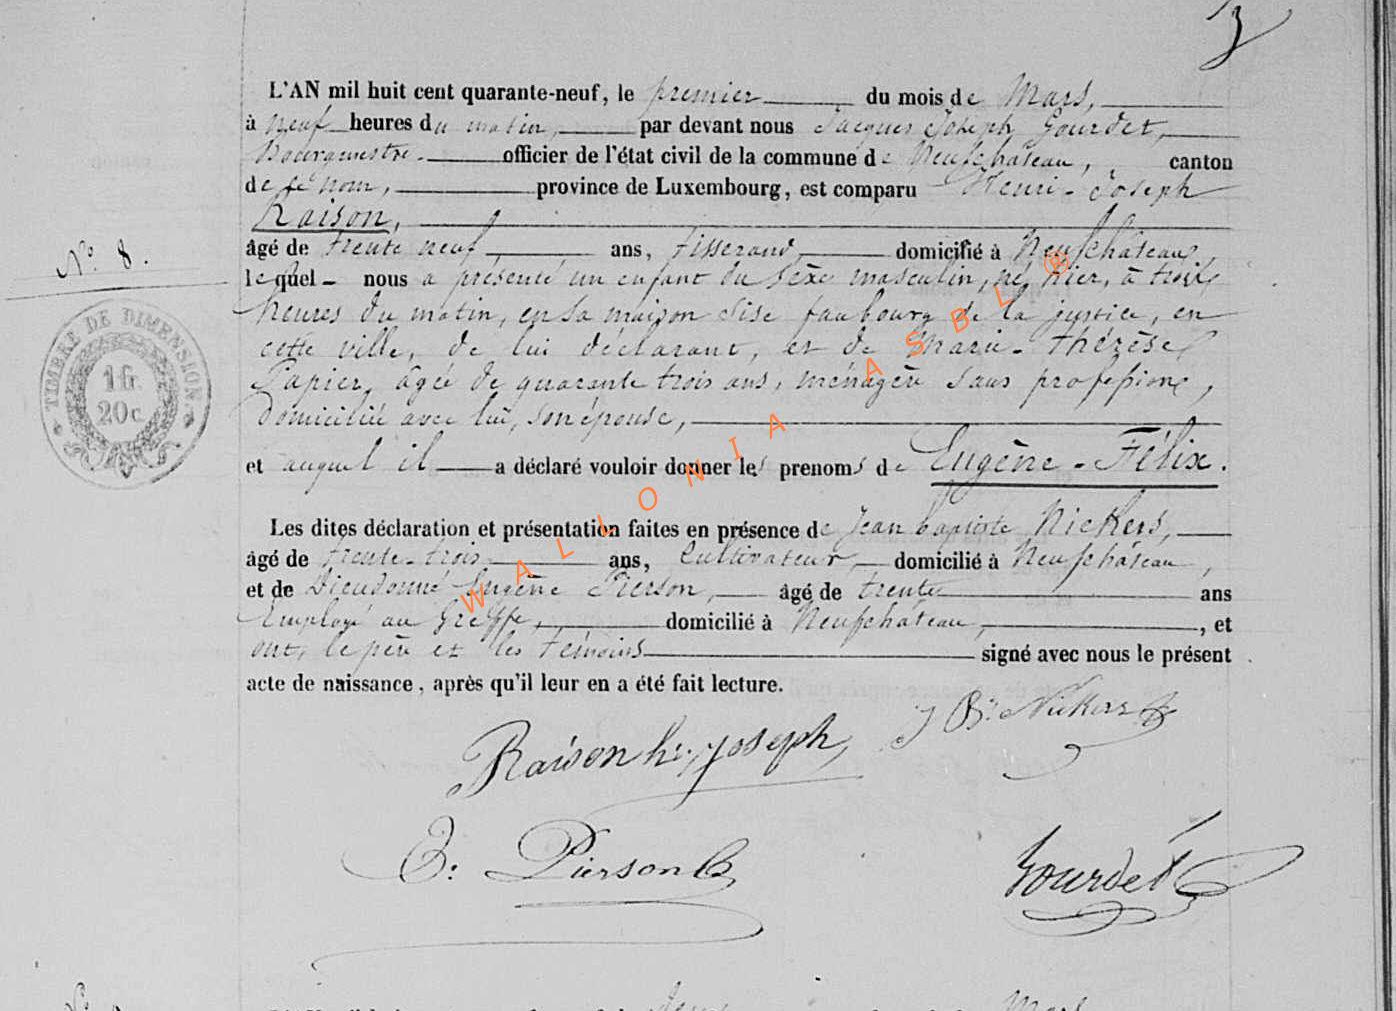 3
L'AN mil huit cent quarante-neuf, le premier du mois de Mars,
à neuf heures du matin, par devant nous Jacques Joseph Gourdet,
Bourgmestre officier de l'état civil de la commune de Neufchateau, canton
de ce nom, province de Luxembourg, est comparu Henri-Joseph
Raison,
âgé de trente neuf ans, tisserand, domicilié à Neufchâteau,
N.° 8.
lequel nous a présenté un enfant du sexe masculin, né hier, à trois
heures du matin, en sa maison sise faubourg de la justice, en
cette ville, de lui déclarant, et de Marie-Thérèse
Papier, âgée de quarante trois ans, ménagère sans profession,
domiciliée avec lui, son épouse,
et auquel il a déclaré vouloir donner les prenoms de Eugène-Félix.
Les dites déclaration et présentation faites en présence de Jean baptiste Nickers,
âgé de trente-trois ans, Cultivateur, domicilié à Neufchâteau,
et de Dieudonné Eugène Pierson, âgé de trente ans
Employé au Greffe, domicilié à Neufchâteau, , et
ont, le père et les témoins signé avec nous le présent
acte de naissance, après qu'il leur en a été fait lecture.
TIMBRE DE DIMENSION
1 f.
20 c.
Raison h: joseph
J B: Nickers
E: Pierson
Gourdet
WALLONIA ASBL ®
Mars